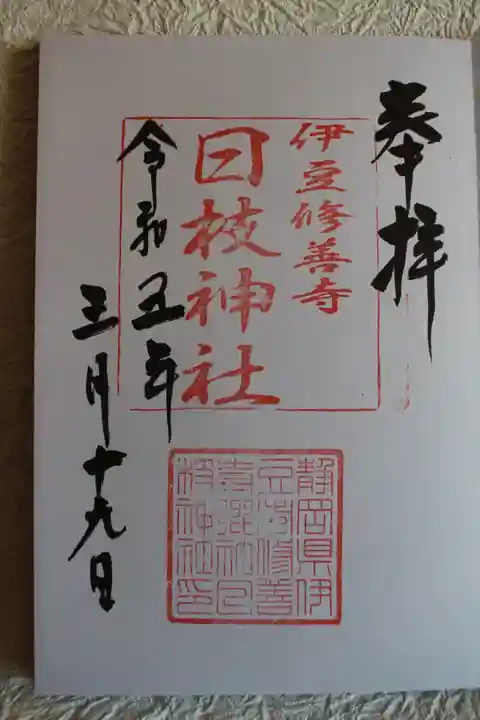 奉拝
伊豆修善寺
日枝神社
令和五年
三月十九日
静岡県伊
豆市修善
寺鎮祀日
枝神社印